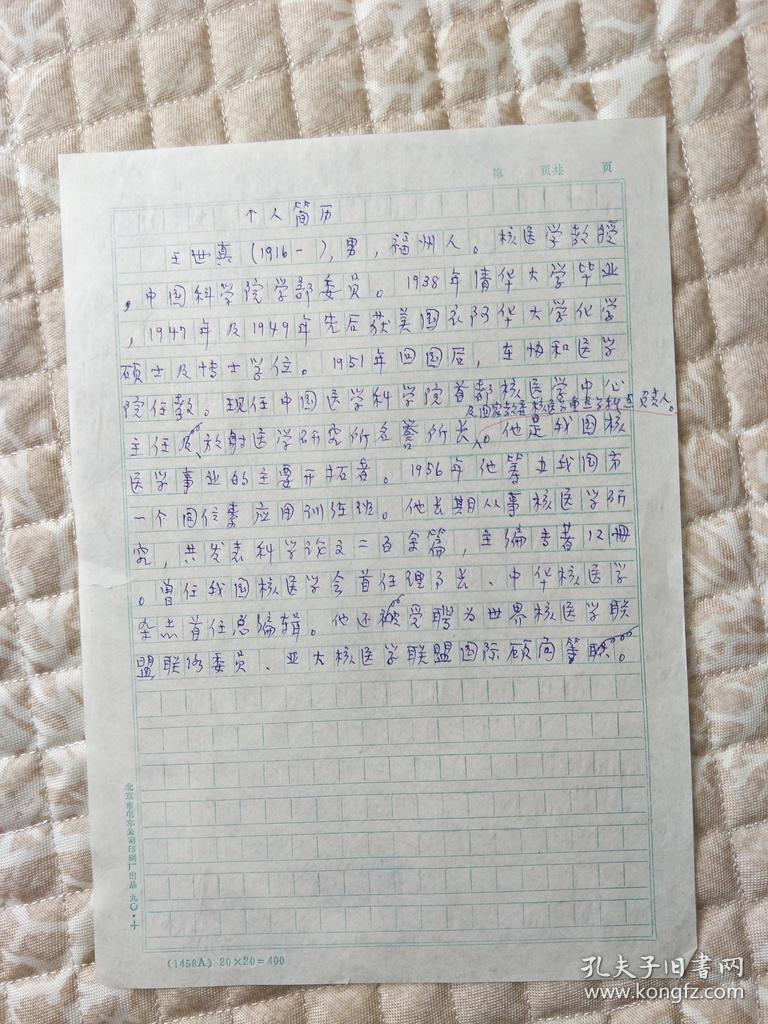 第 页共 页
个人简历
王世真（1916－），男，福州人。核医学教授
，中国科学院学部委员。1938年清华大学毕业
，1947年及1949年先后获美国衣阿华大学化学
硕士及博士学位。1951年回国后，在协和医学
院任教。现任中国医学科学院首都核医学中心
及国家教委核医学重点学科点负责人。
主任及放射医学研究所名誉所长。他是我国核
医学事业的主要开拓者。1956年他筹立我国第
一个同位素应用训练班。他长期从事核医学研
究，共发表科学论文二百余篇，主编专著12册
。曾任我国核医学会首任理事长、中华核医学
杂志首任总编辑。他还被受聘为世界核医学联
盟联络委员、亚大核医学联盟国际顾问等职。
北京市电车公司印刷厂出品 九〇·十
(1458A) 20×20=400
孔夫子旧书网
www.kongfz.com